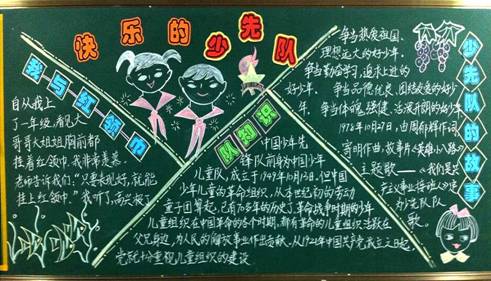 快乐的少先队
我与红领巾
自从我上
了一年级,看见大
哥哥大姐姐胸前都
挂着红领巾,我非常羡慕
老师告诉我们:“只要表现好,就能
挂上红领巾。”我听了,高兴极了
队知识
中国少年先
锋队前身为中国少年
儿童队,成立于1949年10月13日,但中国
少年儿童的革命组织,从本世纪初的劳动
童子团算起,已有70多年的历史了革命战争时期的少年
儿童组织在中国革命的各个时期,都有革命的儿童组织活跃在
父兄身边,为人民的解放事业作出贡献。从1922年中国共产党成立之日起,
党就十分重视儿童组织的建设
争当热爱祖国、
理想远大的好少年,
争当勤奋学习、追求上进的
好少年,争当品德优良、团结友爱的好少
年,争当体魄强健、活泼开朗的好少年
1978年10月27日,由周郁辉作词
寄明作曲,故事片《英雄小八路》
主题歌——《我们是共
产主义事业接班人》定
为少先队队
歌。
少先队的故事